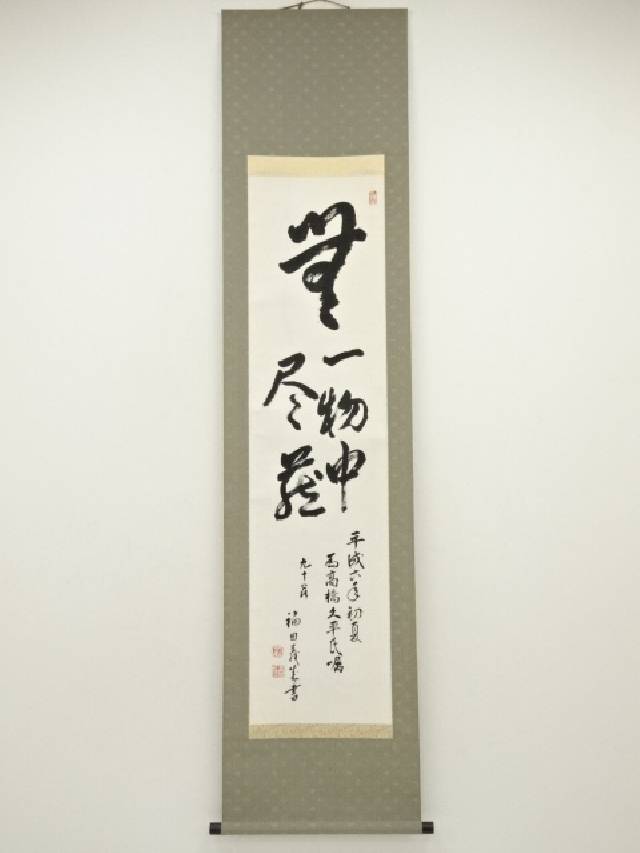 無
一物中
尽蔵
平成六年初夏
為高橋太平氏嘱
九十翁
福田書